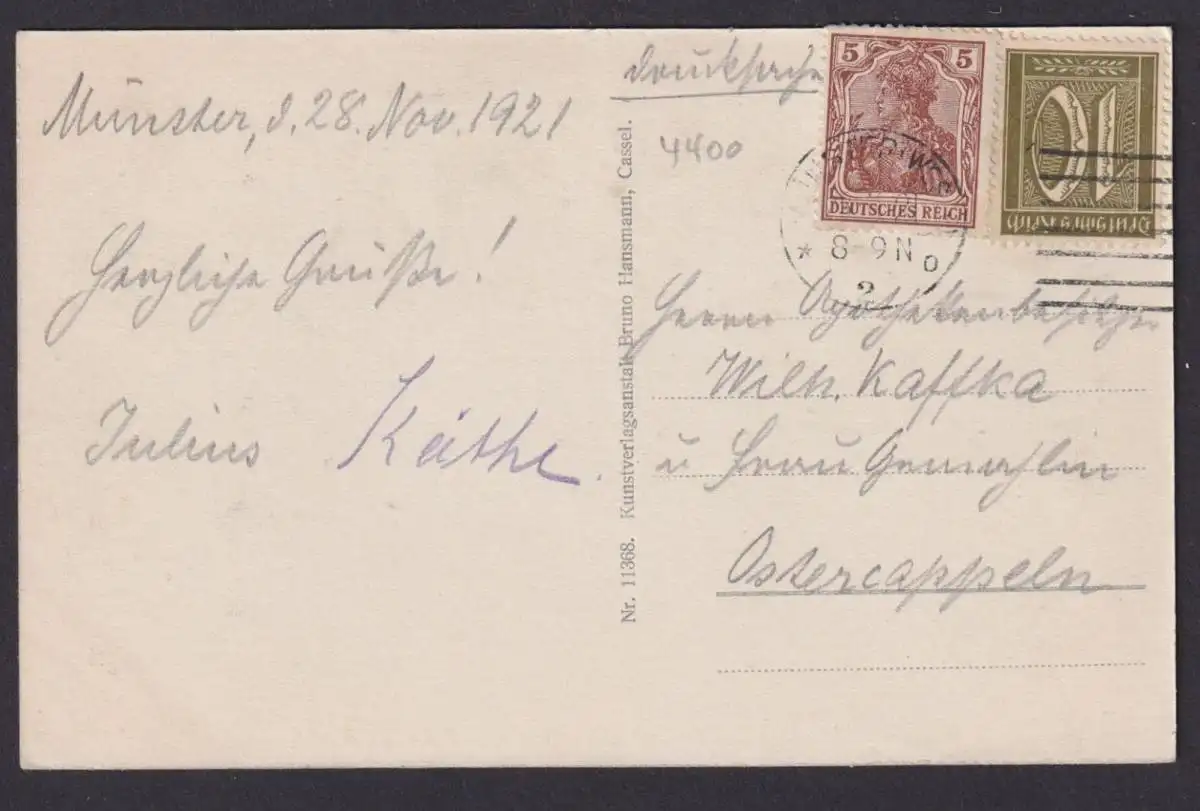 Münster, d. 28. Nov. 1921
Herzliche Grüße!
Julius Käthe.
Nr. 11368. Kunstverlagsanstalt Bruno Hansmann, Cassel.
Drucksache
4400
5 5
DEUTSCHES REICH
10
Deutsches Reich
* 8-9 N
2
Herrn Apothekenbesitzer
Wilh. Kaffka
u Frau Gemahlin
Ostercappeln